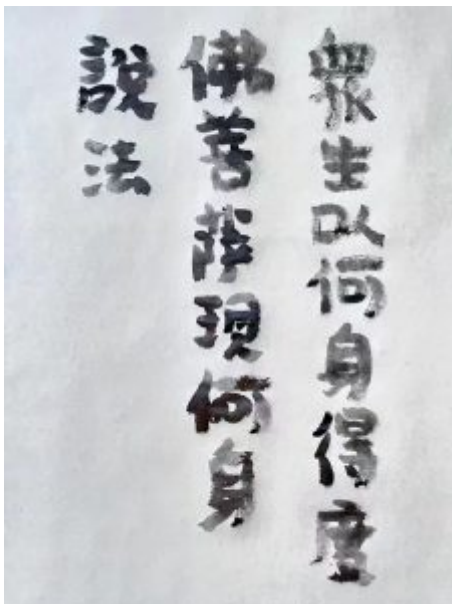 眾生以何身得度
佛菩薩現何身
說法